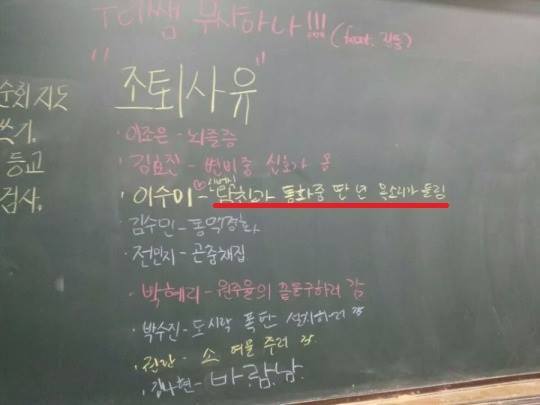 무사하나!!!
"조퇴사유"
순회지도
쓰기.
등교
검사.
· 이조은 - 뇌졸증
· 김효진 - 변비중 신호가 옴
· 이수미 - 남친과 통화중 딴 년 목소리가 들림
· 김수민 - 동맥경화
· 전민지 - 곤충채집
· 박혜리 - 원주율의 끝을구하러 감
· 박수진 - 도시락 폭탄 설치하러 감
- 소 여물 주러 감
- 바람남